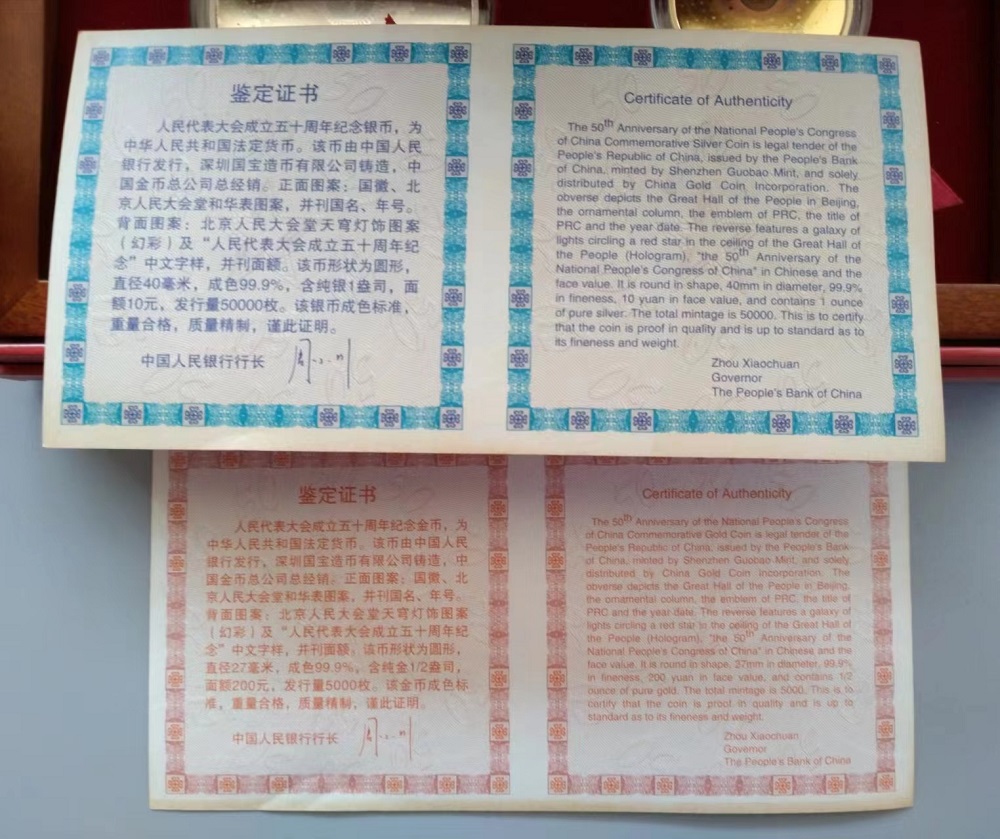 鉴定证书
人民代表大会成立五十周年纪念银币，为
中华人民共和国法定货币。该币由中国人民
银行发行，深圳国宝造币有限公司铸造，中
国金币总公司总经销。正面图案：国徽、北
京人民大会堂和华表图案，并刊国名、年号。
背面图案：北京人民大会堂天穹灯饰图案
（幻彩）及“人民代表大会成立五十周年纪
念”中文字样，并刊面额。该币形状为圆形，
直径40毫米，成色99.9%，含纯银1盎司，面
额10元，发行量50000枚。该银币成色标准，
重量合格，质量精制，谨此证明。
中国人民银行行长
Certificate of Authenticity
The 50th Anniversary of the National People's Congress
of China Commemorative Silver Coin is legal tender of the
People's Republic of China, issued by the People's Bank
of China, minted by Shenzhen Guobao Mint, and solely
distributed by China Gold Coin Incorporation. The
obverse depicts the Great Hall of the People in Beijing,
the ornamental column, the emblem of PRC, the title of
PRC and the year date. The reverse features a galaxy of
lights circling a red star in the ceiling of the Great Hall of
the People (Hologram), "the 50th Anniversary of the
National People's Congress of China" in Chinese and the
face value. It is round in shape, 40mm in diameter, 99.9%
in fineness, 10 yuan in face value, and contains 1 ounce
of pure silver. The total mintage is 50000. This is to certify
that the coin is proof in quality and is up to standard as to
its fineness and weight.
Zhou Xiaochuan
Governor
The People's Bank of China
鉴定证书
人民代表大会成立五十周年纪念金币，为
中华人民共和国法定货币。该币由中国人民
银行发行，深圳国宝造币有限公司铸造，中
国金币总公司总经销。正面图案：国徽、北
京人民大会堂和华表图案，并刊国名、年号。
背面图案：北京人民大会堂天穹灯饰图案
（幻彩）及“人民代表大会成立五十周年纪
念”中文字样，并刊面额。该币形状为圆形，
直径27毫米，成色99.9%，含纯金1/2盎司，
面额200元，发行量5000枚。该金币成色标
准，重量合格，质量精制，谨此证明。
中国人民银行行长
Certificate of Authenticity
The 50th Anniversary of the National People's Congress
of China Commemorative Gold Coin is legal tender of the
People's Republic of China, issued by the People's Bank
of China, minted by Shenzhen Guobao Mint, and solely
distributed by China Gold Coin Incorporation. The
obverse depicts the Great Hall of the People in Beijing,
the ornamental column, the emblem of PRC, the title of
PRC and the year date. The reverse features a galaxy of
lights circling a red star in the ceiling of the Great Hall of
the People (Hologram), "the 50th Anniversary of the
National People's Congress of China" in Chinese and the
face value. It is round in shape, 27mm in diameter, 99.9%
in fineness, 200 yuan in face value, and contains 1/2
ounce of pure gold. The total mintage is 5000. This is to
certify that the coin is proof in quality and is up to
standard as to its fineness and weight.
Zhou Xiaochuan
Governor
The People's Bank of China